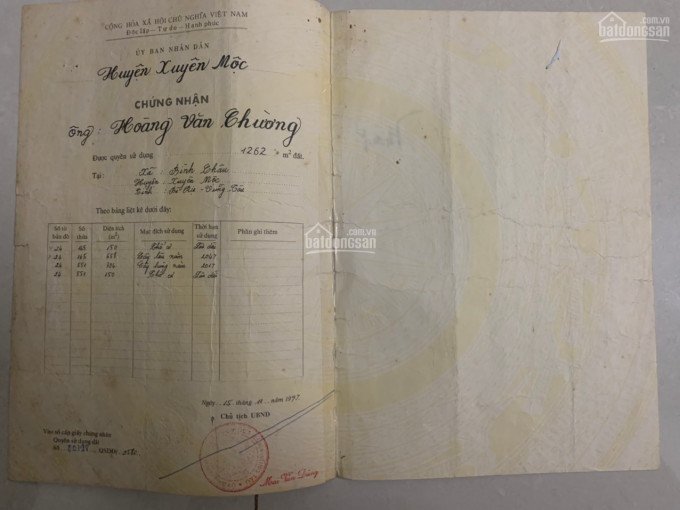 CỘNG HÒA XÃ HỘI CHỦ NGHĨA VIỆT NAM
Độc lập - Tự do - Hạnh phúc
ỦY BAN NHÂN DÂN
Huyện Xuyên Mộc
CHỨNG NHẬN
Ông : Hoàng Văn Chường
Được quyền sử dụng 1262 m² đất.
Tại : Xã : Bình Châu
Huyện : Xuyên Mộc
Tỉnh : Bà Rịa - Vũng Tàu
Theo bảng liệt kê dưới đây:
Số tờ bản đồ Số thửa Diện tích (m²) Mục đích sử dụng Thời hạn sử dụng Phần ghi thêm
24 165 150 Thổ cư
24 165 658 Cây lâu năm 2047
24 551 304 Cây hàng năm 2017
24 551 150 Thổ cư
Ngày 15 tháng 11 năm 1997
Chủ tịch UBND
Vào sổ cấp giấy chứng nhận
Quyền sử dụng đất
Số QSDĐ/
Mai Văn Dũng
batdongsan
.com.vn
batdongsan
.com.vn
batdongsan
.com.vn